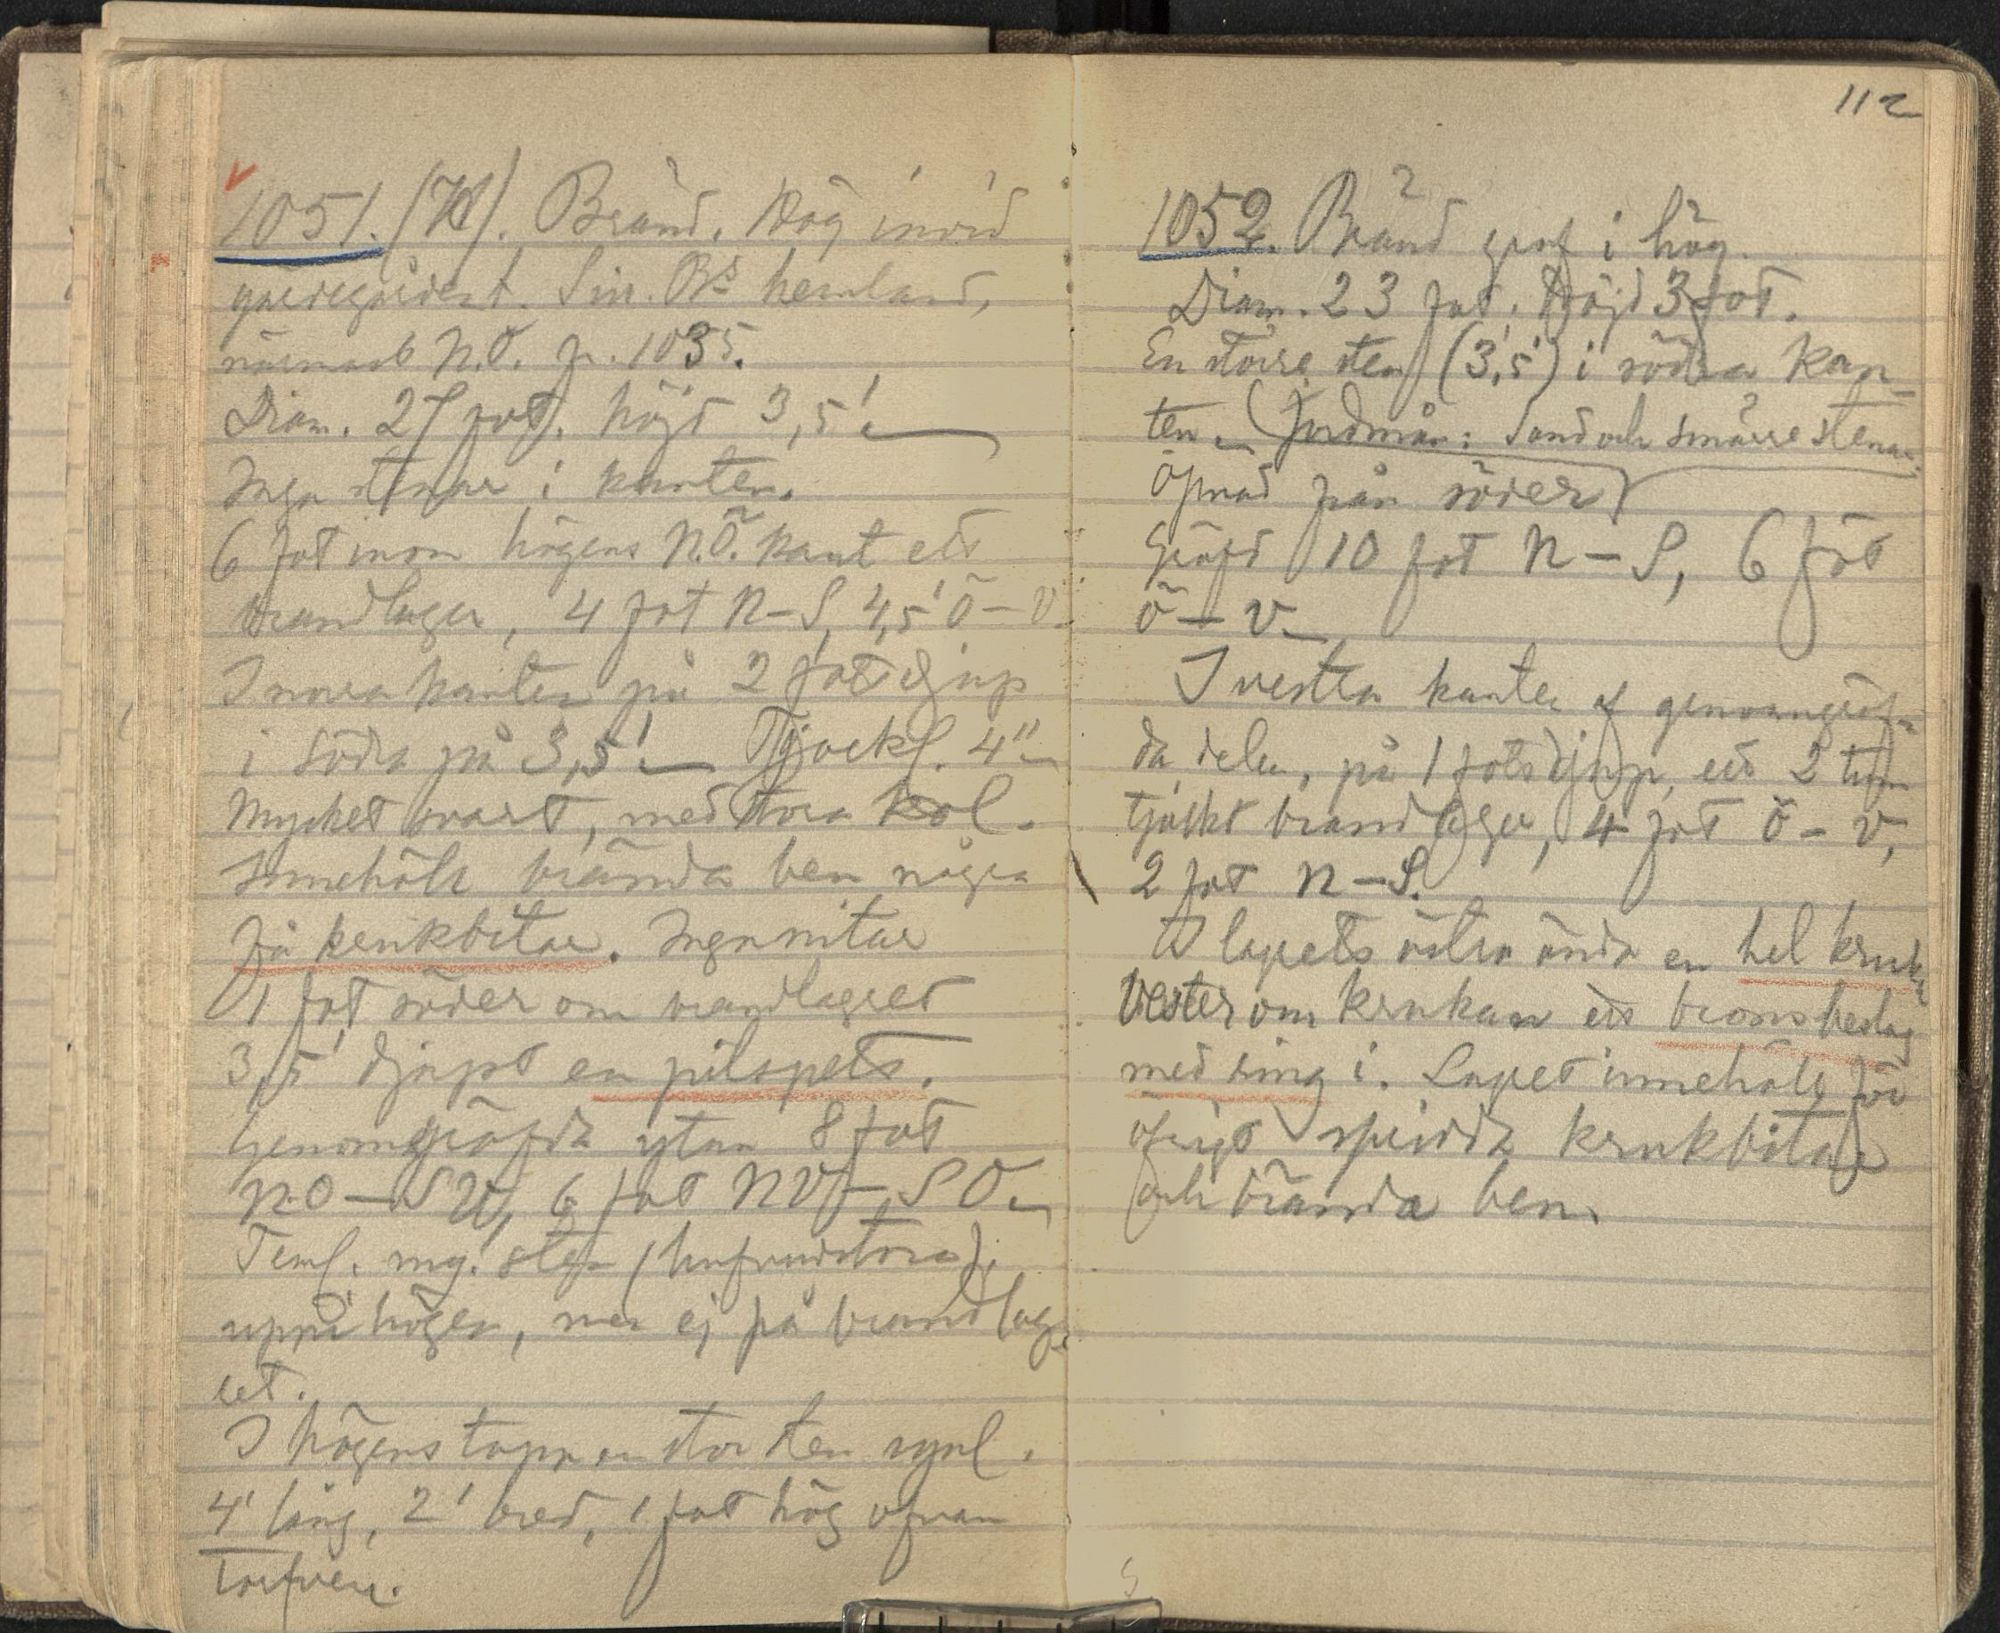 1051. (H). Bränd. Hög invid
gärdesgården t. Sin. Bs hemland,
närmast N.Ö. fr. 1035.
Diam. 27 fot. höjd 3,5'.
Inga stenar i kanten.
6 fot inom högens N.Ö. kant ett
brandlager, 4 fot N–S, 4,5' Ö–V.
I norra kanten på 2 fots djup
i södra på 3,5'. Tjockl. 4".
Mycket svart, med stora kol.
Innehöll brända ben några
få krukbitar. Inga nitar
1 fot söder om brandlagret
3,5' djupt en pilspets.
Genomgräfda ytan 8 fot
NO–SV, 6 fot NV–SO.
Teml. mg. sten (hufvudstora)
uppi högen, men ej på brandlag-
ret.
I högens topp en stor sten synl.
4' lång, 2' bred, 1 fot hög ofvan
torfven.
112
1052. Bränd graf i hög.
Diam. 23 fot. Höjd 3 fot.
En större sten (3,5') i södra kan-
ten. (Jordmån: Sand och smärre stenar.
Öpnad från söder)
Gräfd 10 fot N–S, 6 fot
Ö–V.
I vestra kanten af genomgräf-
da delen, på 1 fots djup, ett 2 tum
tjockt brandlager, 4 fot Ö–V,
2 fot N–S.
I lagrets östra ända en hel kruka
Vester om krukan ett bronsbeslag
med ring i. Lagret innehöll för
öfrigt spridda krukbitar
och brända ben.